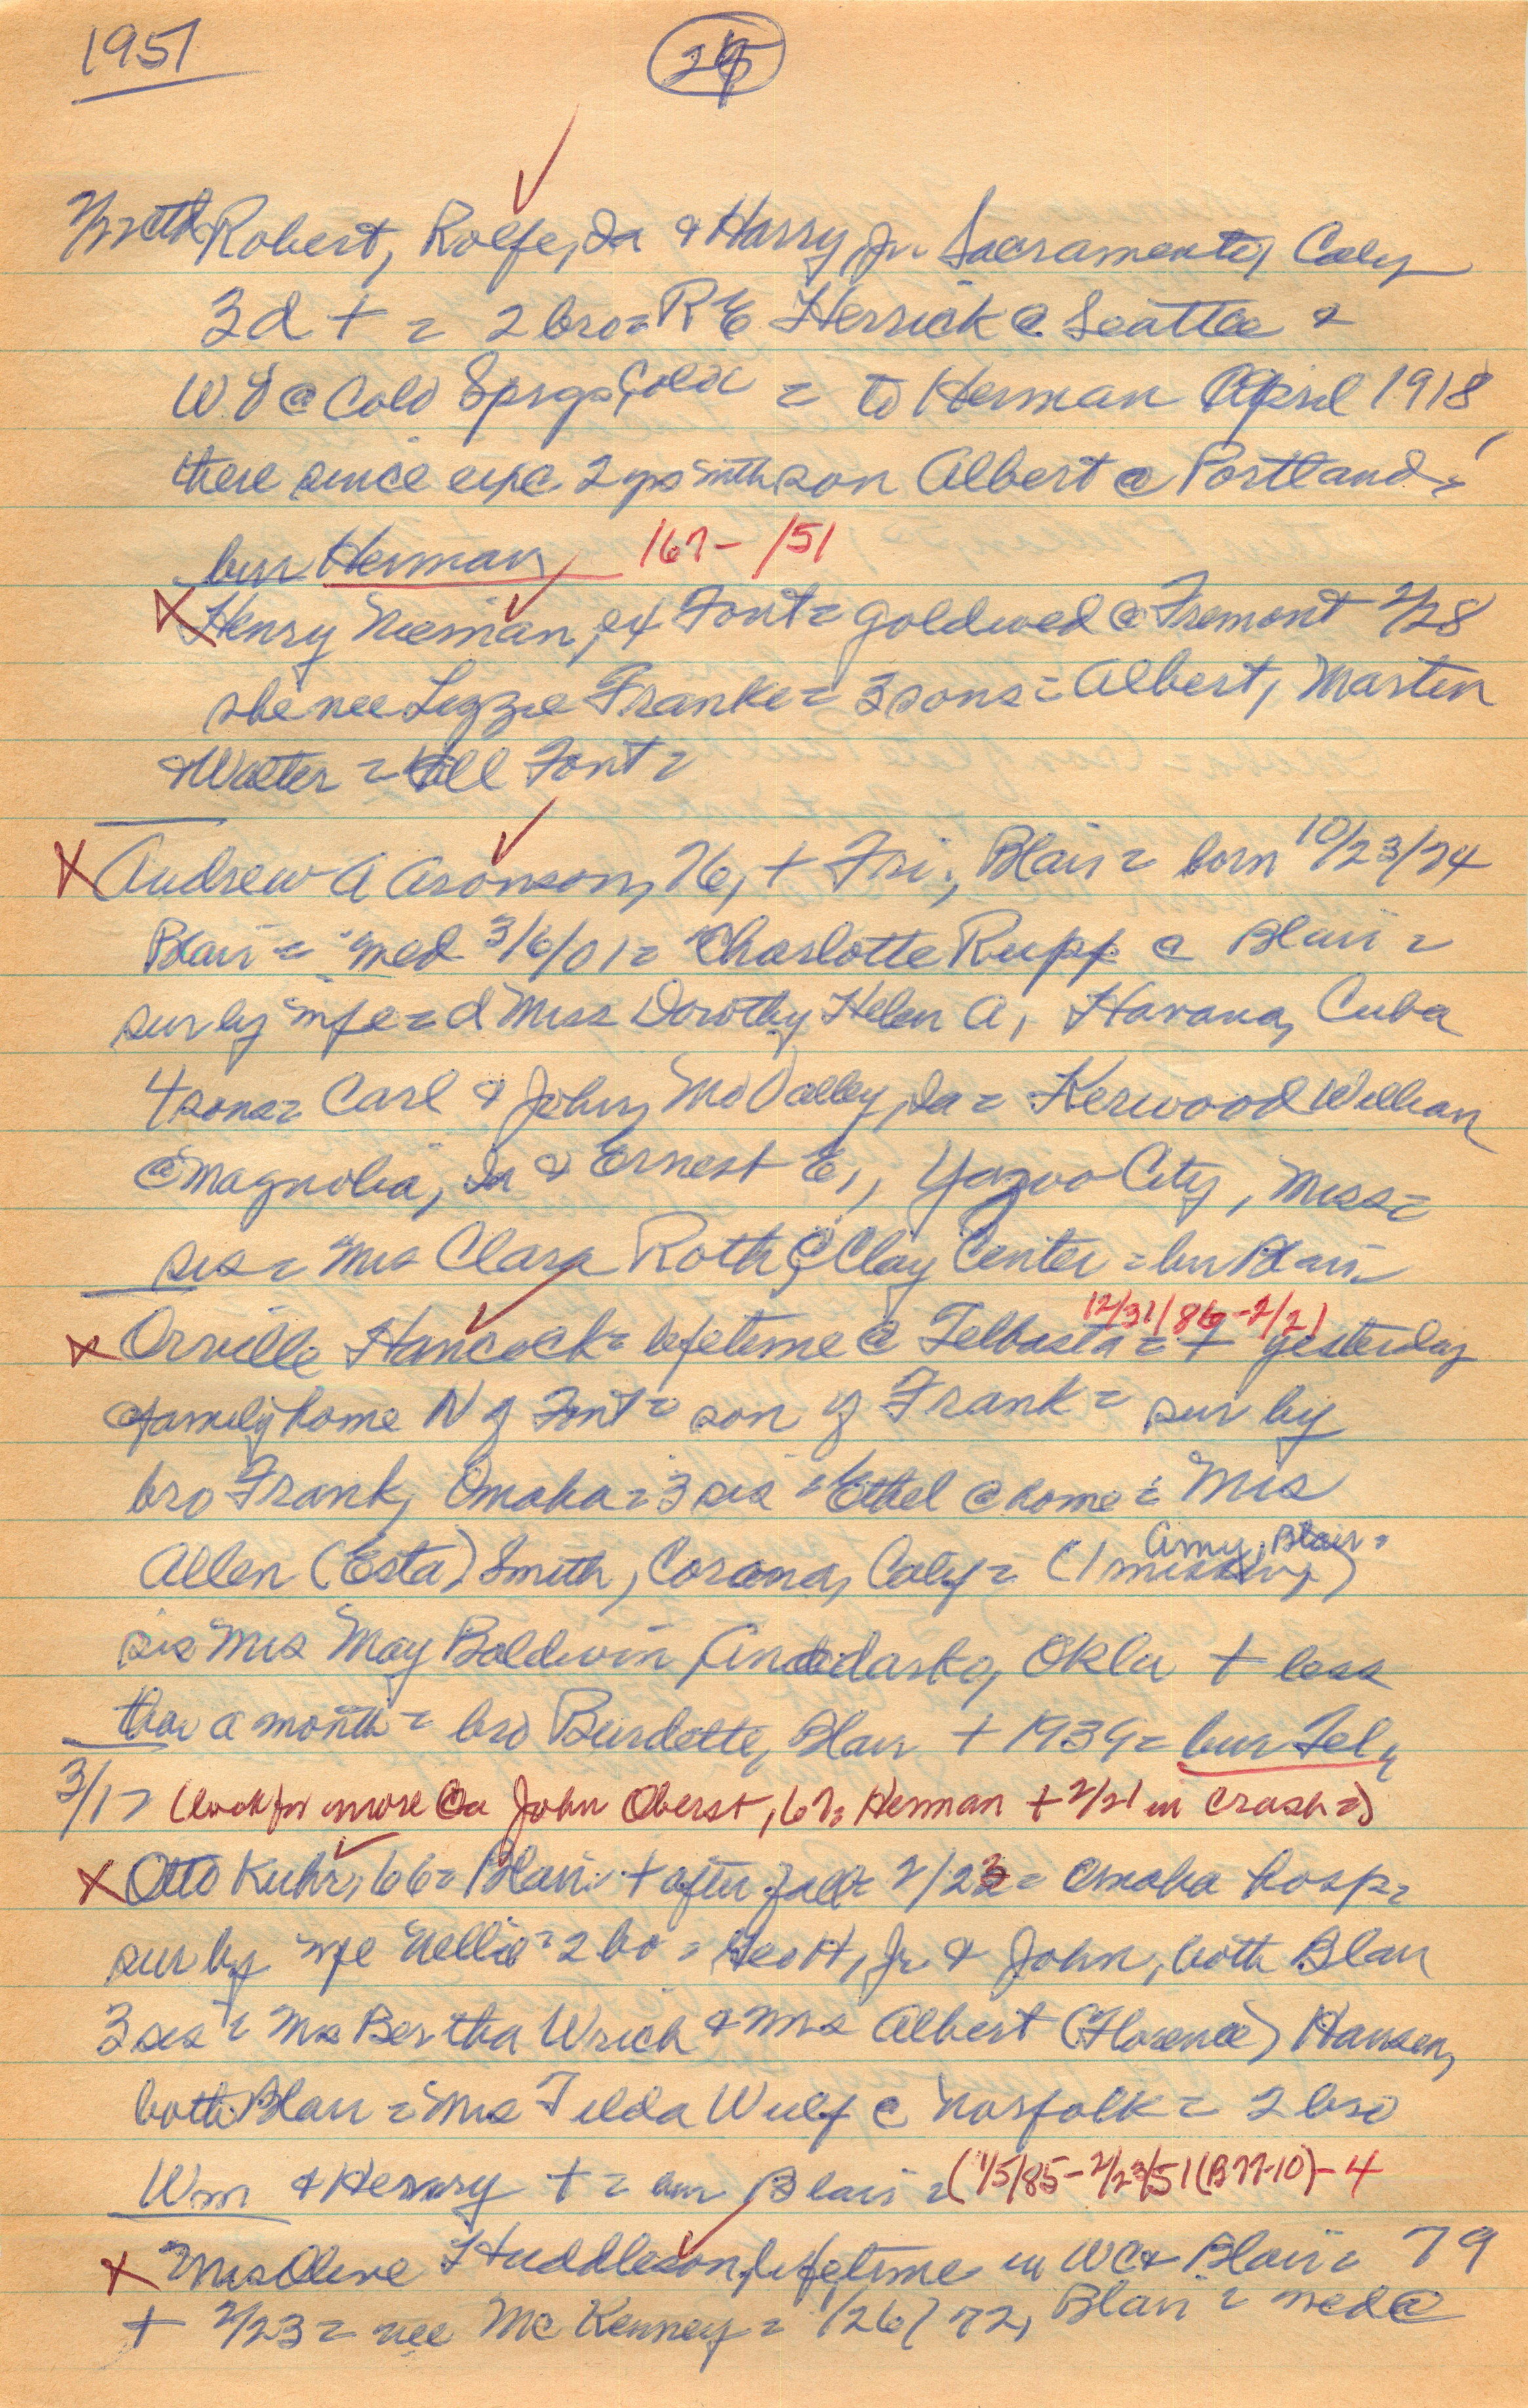 1951
24
Robert, Rolfe, Ia & Harry Jr. Sacramento, Calif
3 d + = 2 bro = R E Herrick @ Seattle &
W E @ Colo Sprgs, Colo = to Herman April 1918,
there since exc. 2 yrs with son Albert @ Portland =
bur Herman 167- /51
X Henry Nieman, ex Font = goldwed @ Fremont 2/28
she nee Lizzie Franke = 3 sons = Albert, Martin
& Walter = all Font =
X Andrew A Aronson, 76, + Fri., Blair = born 10/23/74
Blair = med 3/6/01 = Charlotte Rupp @ Blair =
sur by wife = d Miss Dorothy Helen A, Havana, Cuba
4 sons = Carl & John, Mo Valley, Ia = Kerwood William
@ Magnolia, Ia & Ernest E., Yazoo City, Miss =
sis = Mrs Clara Roth @ Clay Center = bur Blair
12/31/86-2/21
X Orville Hancock = lifetime @ Telbasta = + yesterday
@ family home N of Font = son of Frank = sur by
bro Frank, Omaha = 3 sis = Ethel @ home = Mrs
Amy, Blair =
Allen (Esta) Smith, Corona, Calif = (1 missing)
sis Mrs May Baldwin, Anadarko, Okla + less
than a month = bro Burdette, Blair + 1939 = bur Tel,
3/1 > (look for more @a John Oberst, 67, Herman + 2/21 in crash =)
X Otto Kuhr, 66 = Blair + after fall = 2/23 = Omaha hosp =
sur by wife Nellie = 2 bro = Geo H, Jr. & John, both Blair
3 sis = Mrs Bertha Wrich & Mrs Albert (Florence) Hansen,
both Blair = Mrs Tilda Wulf @ Norfolk = 2 bro
Wm & Henry + = bur Blair = (1/5/85-2/23/51 (B77-10)-4
X Mrs Olive Huddleson, lifetime in WC & Blair = 79
+ 2/23 = nee McKenney = 1/26/72, Blair = med @